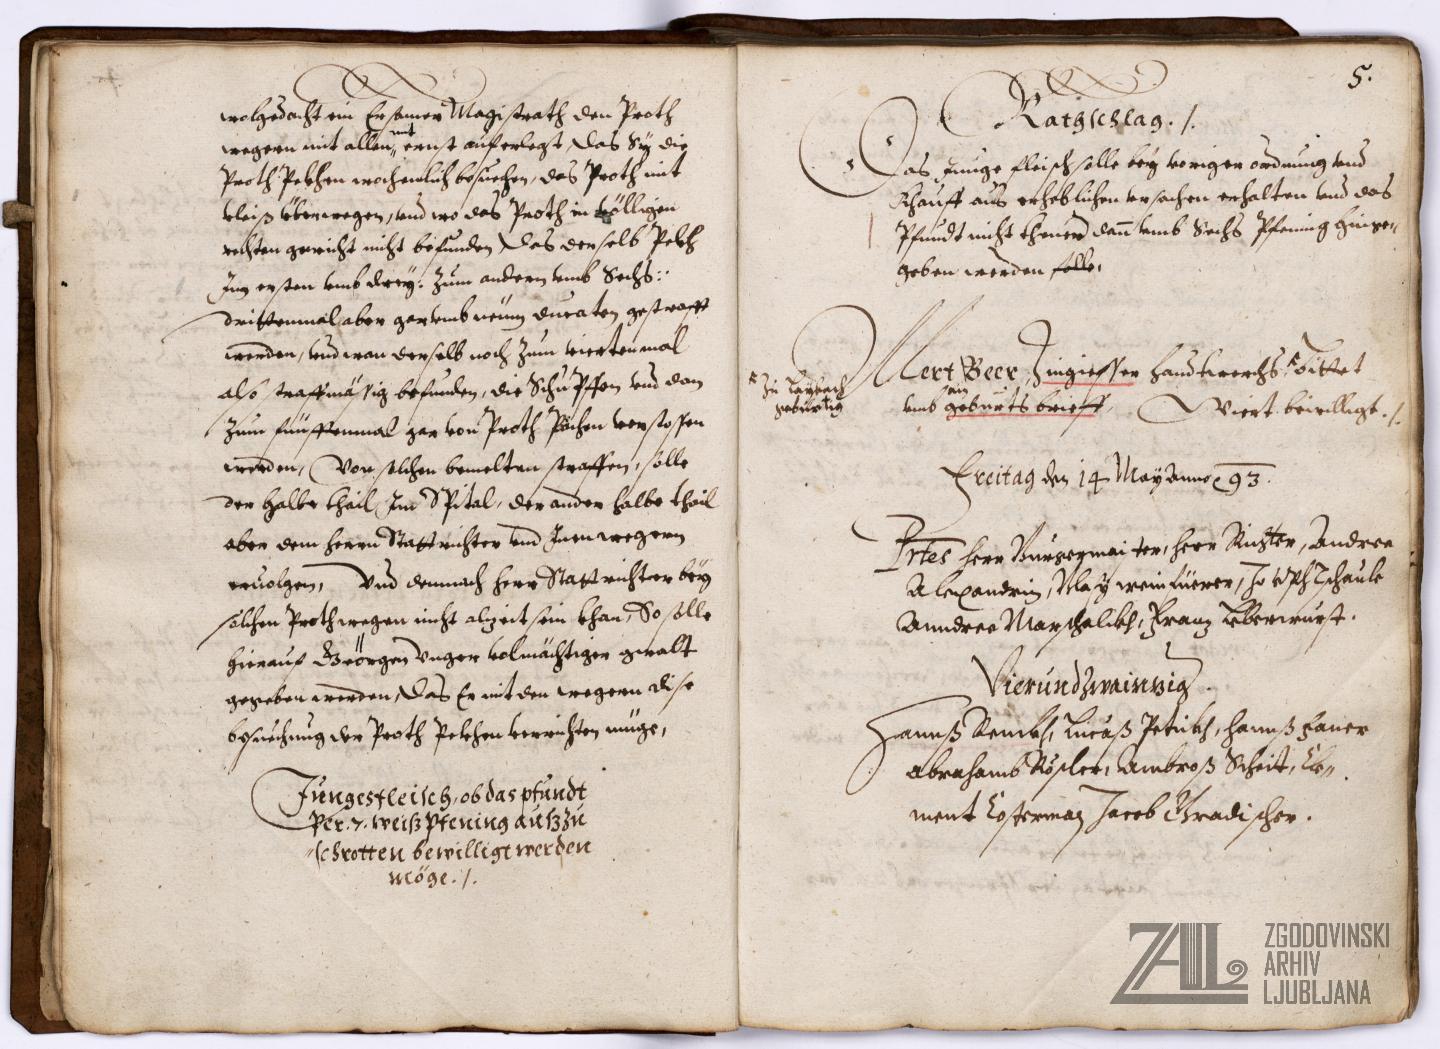 wolgedacht ein Ersamer Magistrath den Proth
wegern mit allem ernst auferlegt, Das Sy die
Proth Pekhen wochenlich besuechen, das Proth mit
vleiß überwegen, und wo das Proth in völligen
rechten gewicht nicht befunden, Das derselb Pekh
Zum ersten umb drey: Zum andern umb Sechs:
drittenmal aber gar umb neün ducaten gestrafft
werden, und wan derselb noch zum viertenmal
also straffmässig befunden, die Schupffen und dan
Zum fünfftenmal gar von Proth Pachen verstossen
werden, Von solchen bemelten straffen, solle
der halbe thail Im Spital, der ander halbe thail
aber dem herrn Stattrichter und Inen wegern
ervolgen, Und demnach herr Stattrichter bey
solchen Prothwegen nicht alzeit sein khan, So solle
hierauf Geörgen Unger volmächtiger gwalt
gegeben werden, Das Er mit den wegern dise
besuechung der Proth Pekhen verrichten müge,
Jungesfleisch, ob das pfundt
Per .7. weiß Pfening auszu
schrotten bewilligt werden
möge ./.
5.
Rathschlag ./.
Das Junge fleisch solle bey voriger ordnung und
Khauff aus erheblichen ursachen erhalten und das
Pfundt nicht theurer dann umb Sechs Pfening hinge=
geben werden solle.
Mert Beer, Zingiesser handtwerchs, bittet
Zu Laybach
geburtig
umb ein geburts brieff, Wiert bewilligt ./.
Freitag den 14 May Anno 93.
Prtes herr Burgermaister, herr Richter, Andree
Alexandrin, May weinlüerer, Joseph Tschaule
Anndree Marschalckh, Franz Leberwurst.
Vierundzwainzig.
Hannß Renckh, Lucaß Petickh, Hannß Faner
Abrahamb Rösler, Ambroß Scheit, Cle=
ment Costerman Jacob Gradischer.
ZAL
ZGODOVINSKI
ARHIV
LJUBLJANA